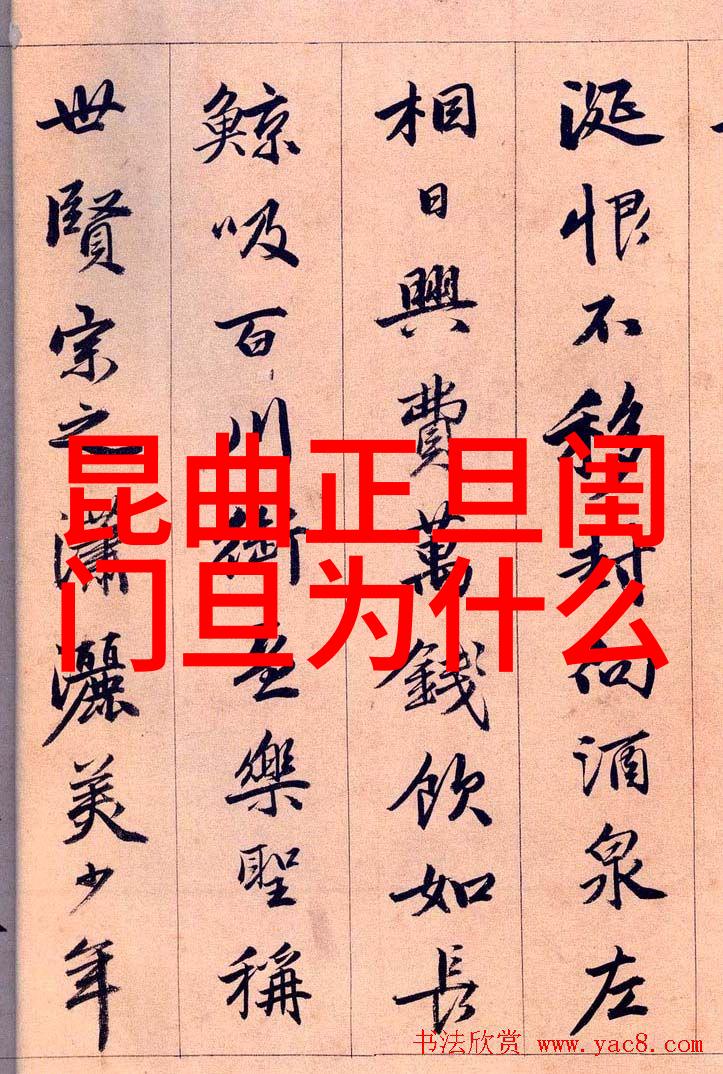 涎恨不移封向酒泉左
相日興費萬錢飲如長
鯨吸百川銜盃樂聖稱
世賢宗之瀟灑美少年
昆曲正旦闺
门旦为什么
书法欣赏 www.yac8.com